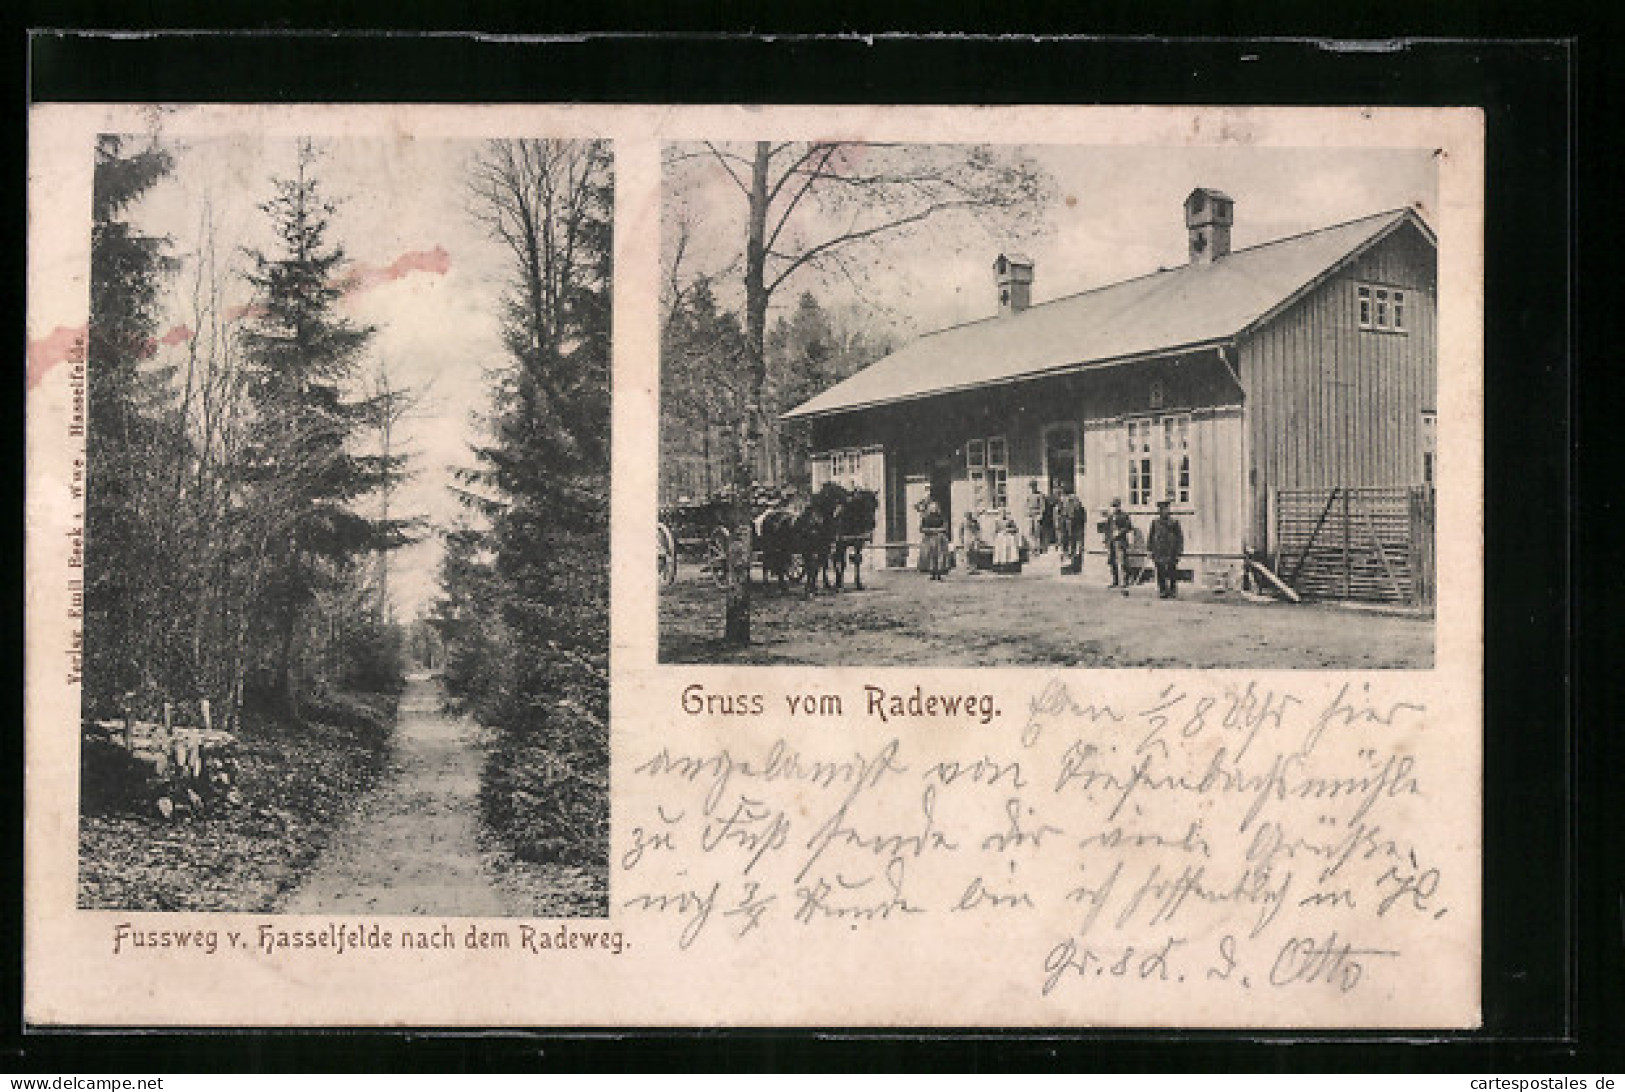 Verlag Emil Beek's Wwe, Hasselfelde.
Fussweg v. Hasselfelde nach dem Radeweg.
Gruss vom Radeweg. Eben 1/2 8 Uhr hier
angelangt von Tiefenbachsmühle
zu Fuß sende dir viele Grüße,
noch 3/4 Stunde bin ich hoffentlich in
Gr. & K. D. Otto
www.cartespostales.de
cartespostales de